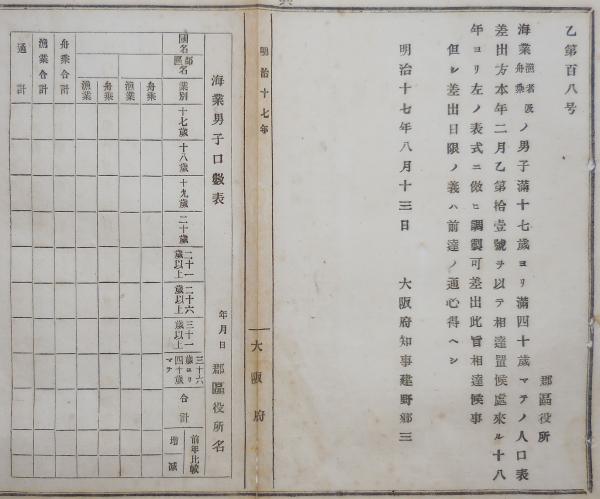 乙第百八号
郡區役所
海業漁者及舟乘ノ男子滿十七歲ヨリ滿四十歲マテノ人口表
差出方本年二月乙第拾壹號ヲ以テ相達置候處來ル十八
年ヨリ左ノ表式ニ倣ヒ調製可差出此旨相達候事
但シ差出日限ノ義ハ前達ノ通心得ヘシ
明治十七年八月十三日
大阪府知事建野鄕三
明治十七年
大阪府
海業男子口數表
年月日
郡區役所名
國名
郡區名
業別
十七歲
十八歲
十九歲
二十歲
二十一歲以上
二十六歲以上
三十一歲以上
三十六歲ヨリ四十歲マテ
合計
前年比較
增
減
舟乘
漁業
舟乘
漁業
舟乘合計
漁業合計
通計